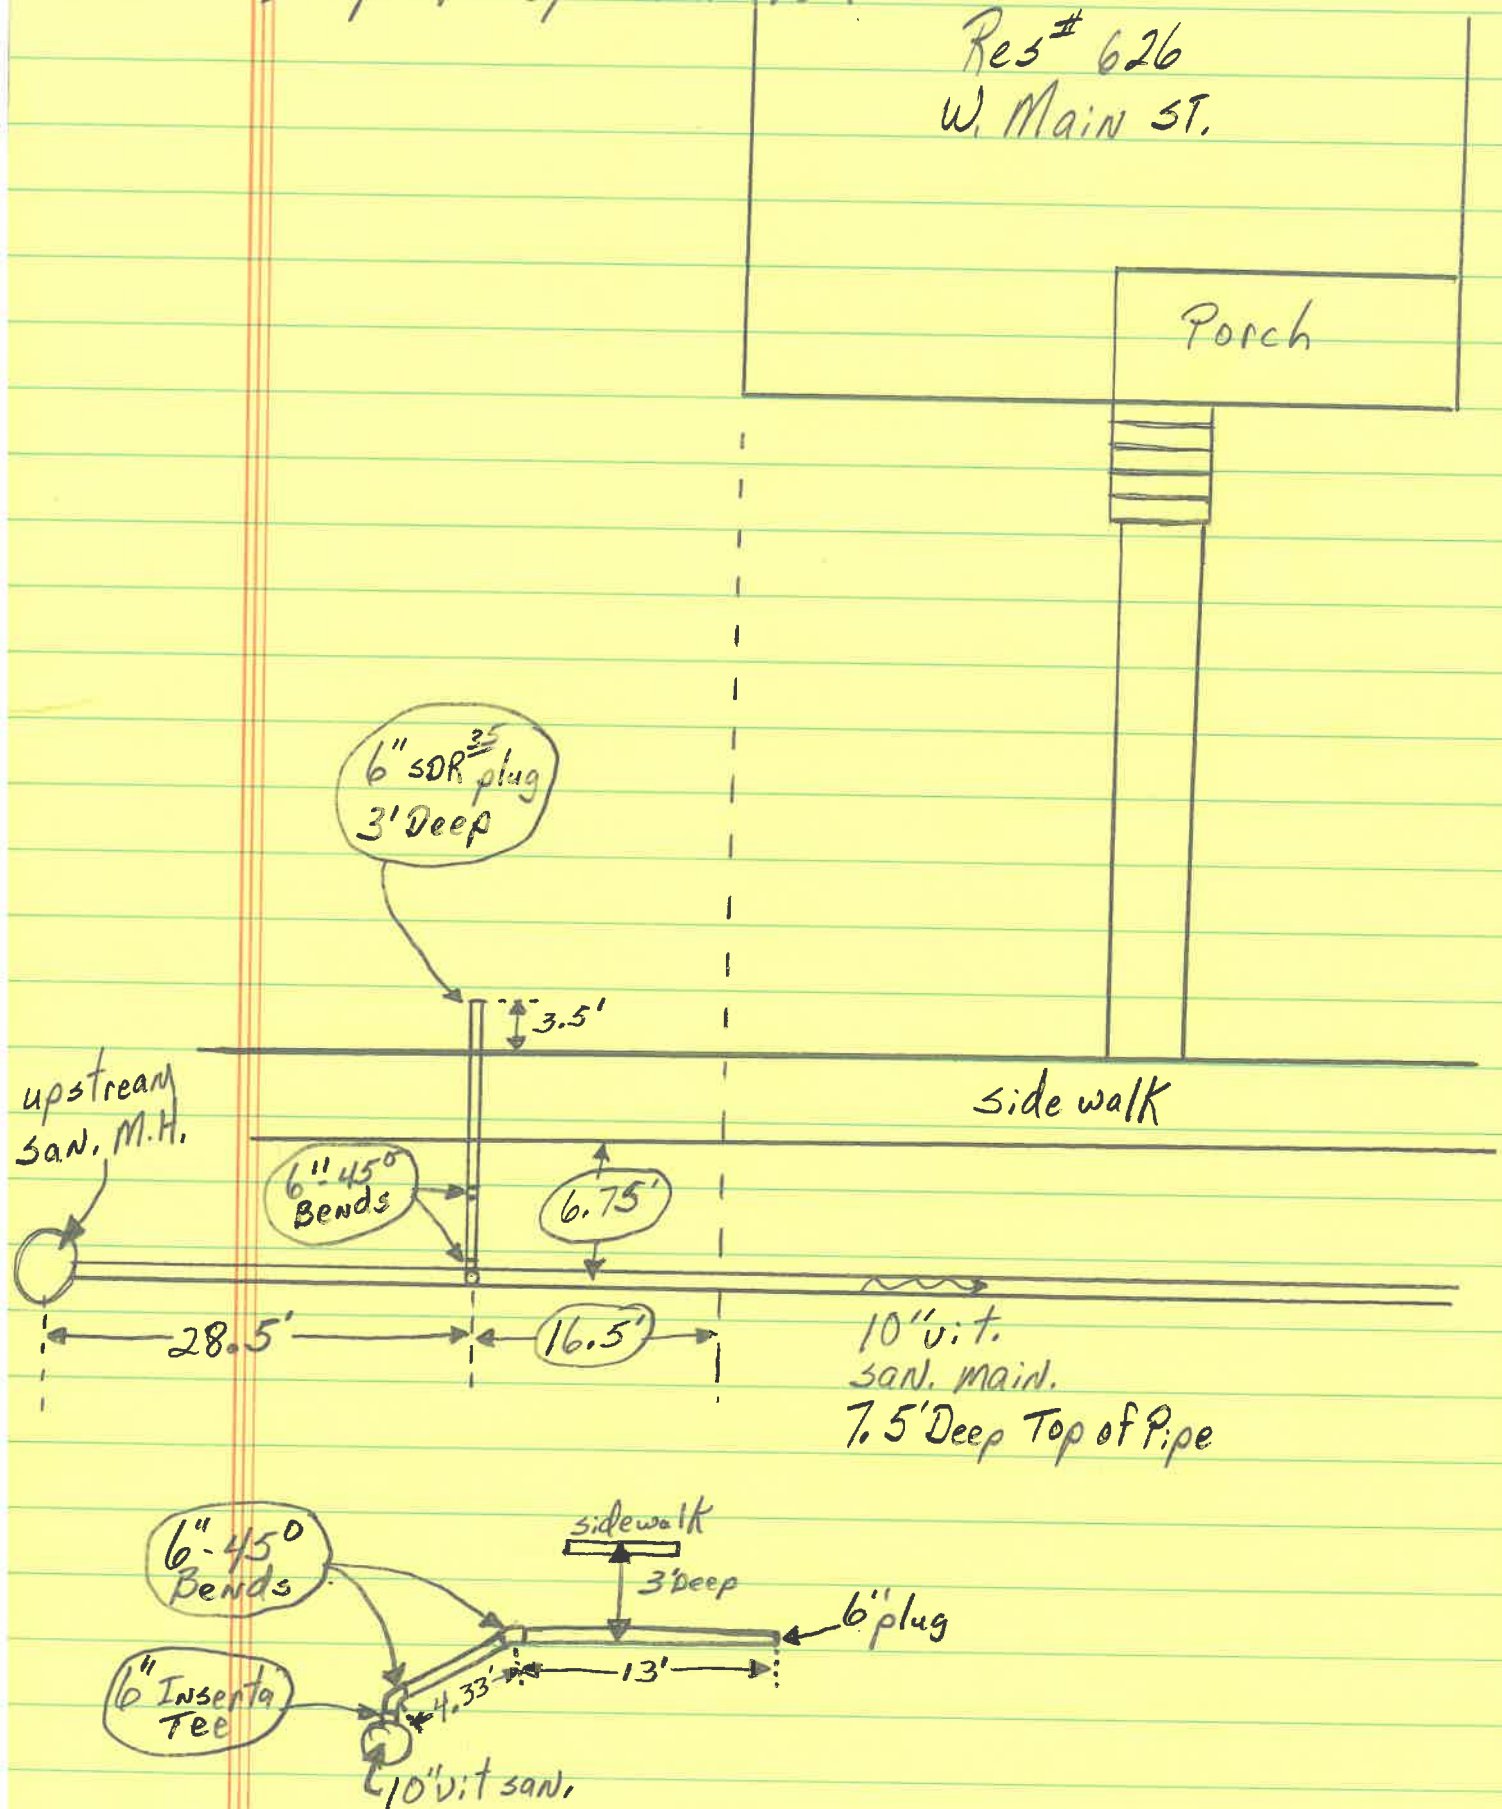 Res # 626
W. Main ST.
Porch
6" SDR 35 plug
3' Deep
3.5'
upstream
san. M.H.
side walk
6"-45°
Bends
6.75'
28.5'
16.5'
10" vit.
san. main.
7.5' Deep Top of Pipe
6"-45°
Bends
sidewalk
3' Deep
6" plug
13'
4.33'
6" Inserta
Tee
10" vit san.